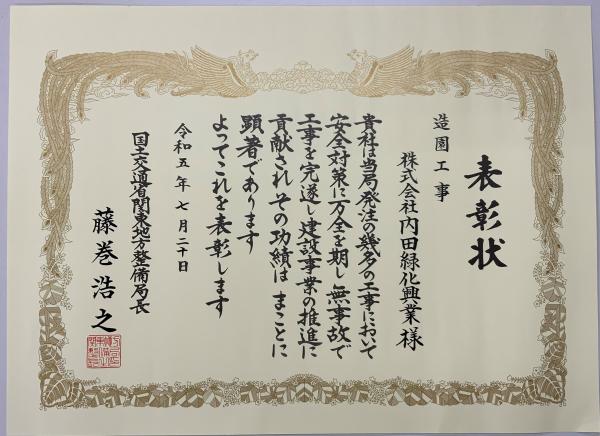 表彰状
造園工事
株式会社内田緑化興業様
貴社は当局発注の幾多の工事において
安全対策に万全を期し無事故で
工事を完遂し建設事業の推進に
貢献されその功績はまことに
顕著であります
よってこれを表彰します
令和五年七月二十日
国土交通省関東地方整備局長
藤巻浩之